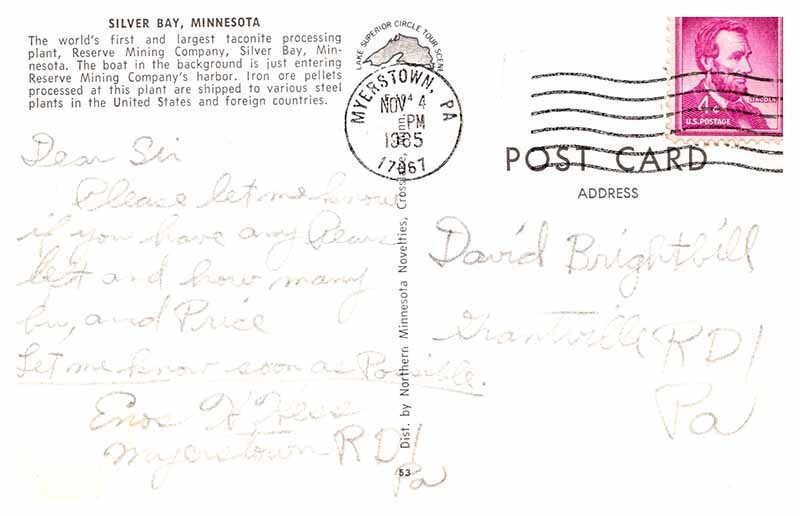 SILVER BAY, MINNESOTA
The world's first and largest taconite processing
plant, Reserve Mining Company, Silver Bay, Min-
nesota. The boat in the background is just entering
Reserve Mining Company's harbor. Iron ore pellets
processed at this plant are shipped to various steel
plants in the United States and foreign countries.
LAKE SUPERIOR CIRCLE TOUR SCENE
MYERSTOWN, PA
NOV 4
PM
1965
17067
4¢
LINCOLN
U.S. POSTAGE
POST CARD
ADDRESS
Dear Sir
Please let me know
if you have any Pears
left and how many
bu, and Price
Let me know soon as Possible.
Enos H Hess
Myerstown RD1
Pa
Dist. by Northern Minnesota Novelties, Crosslake, Minn.
53
David Brightbill
Grantville RD1
Pa